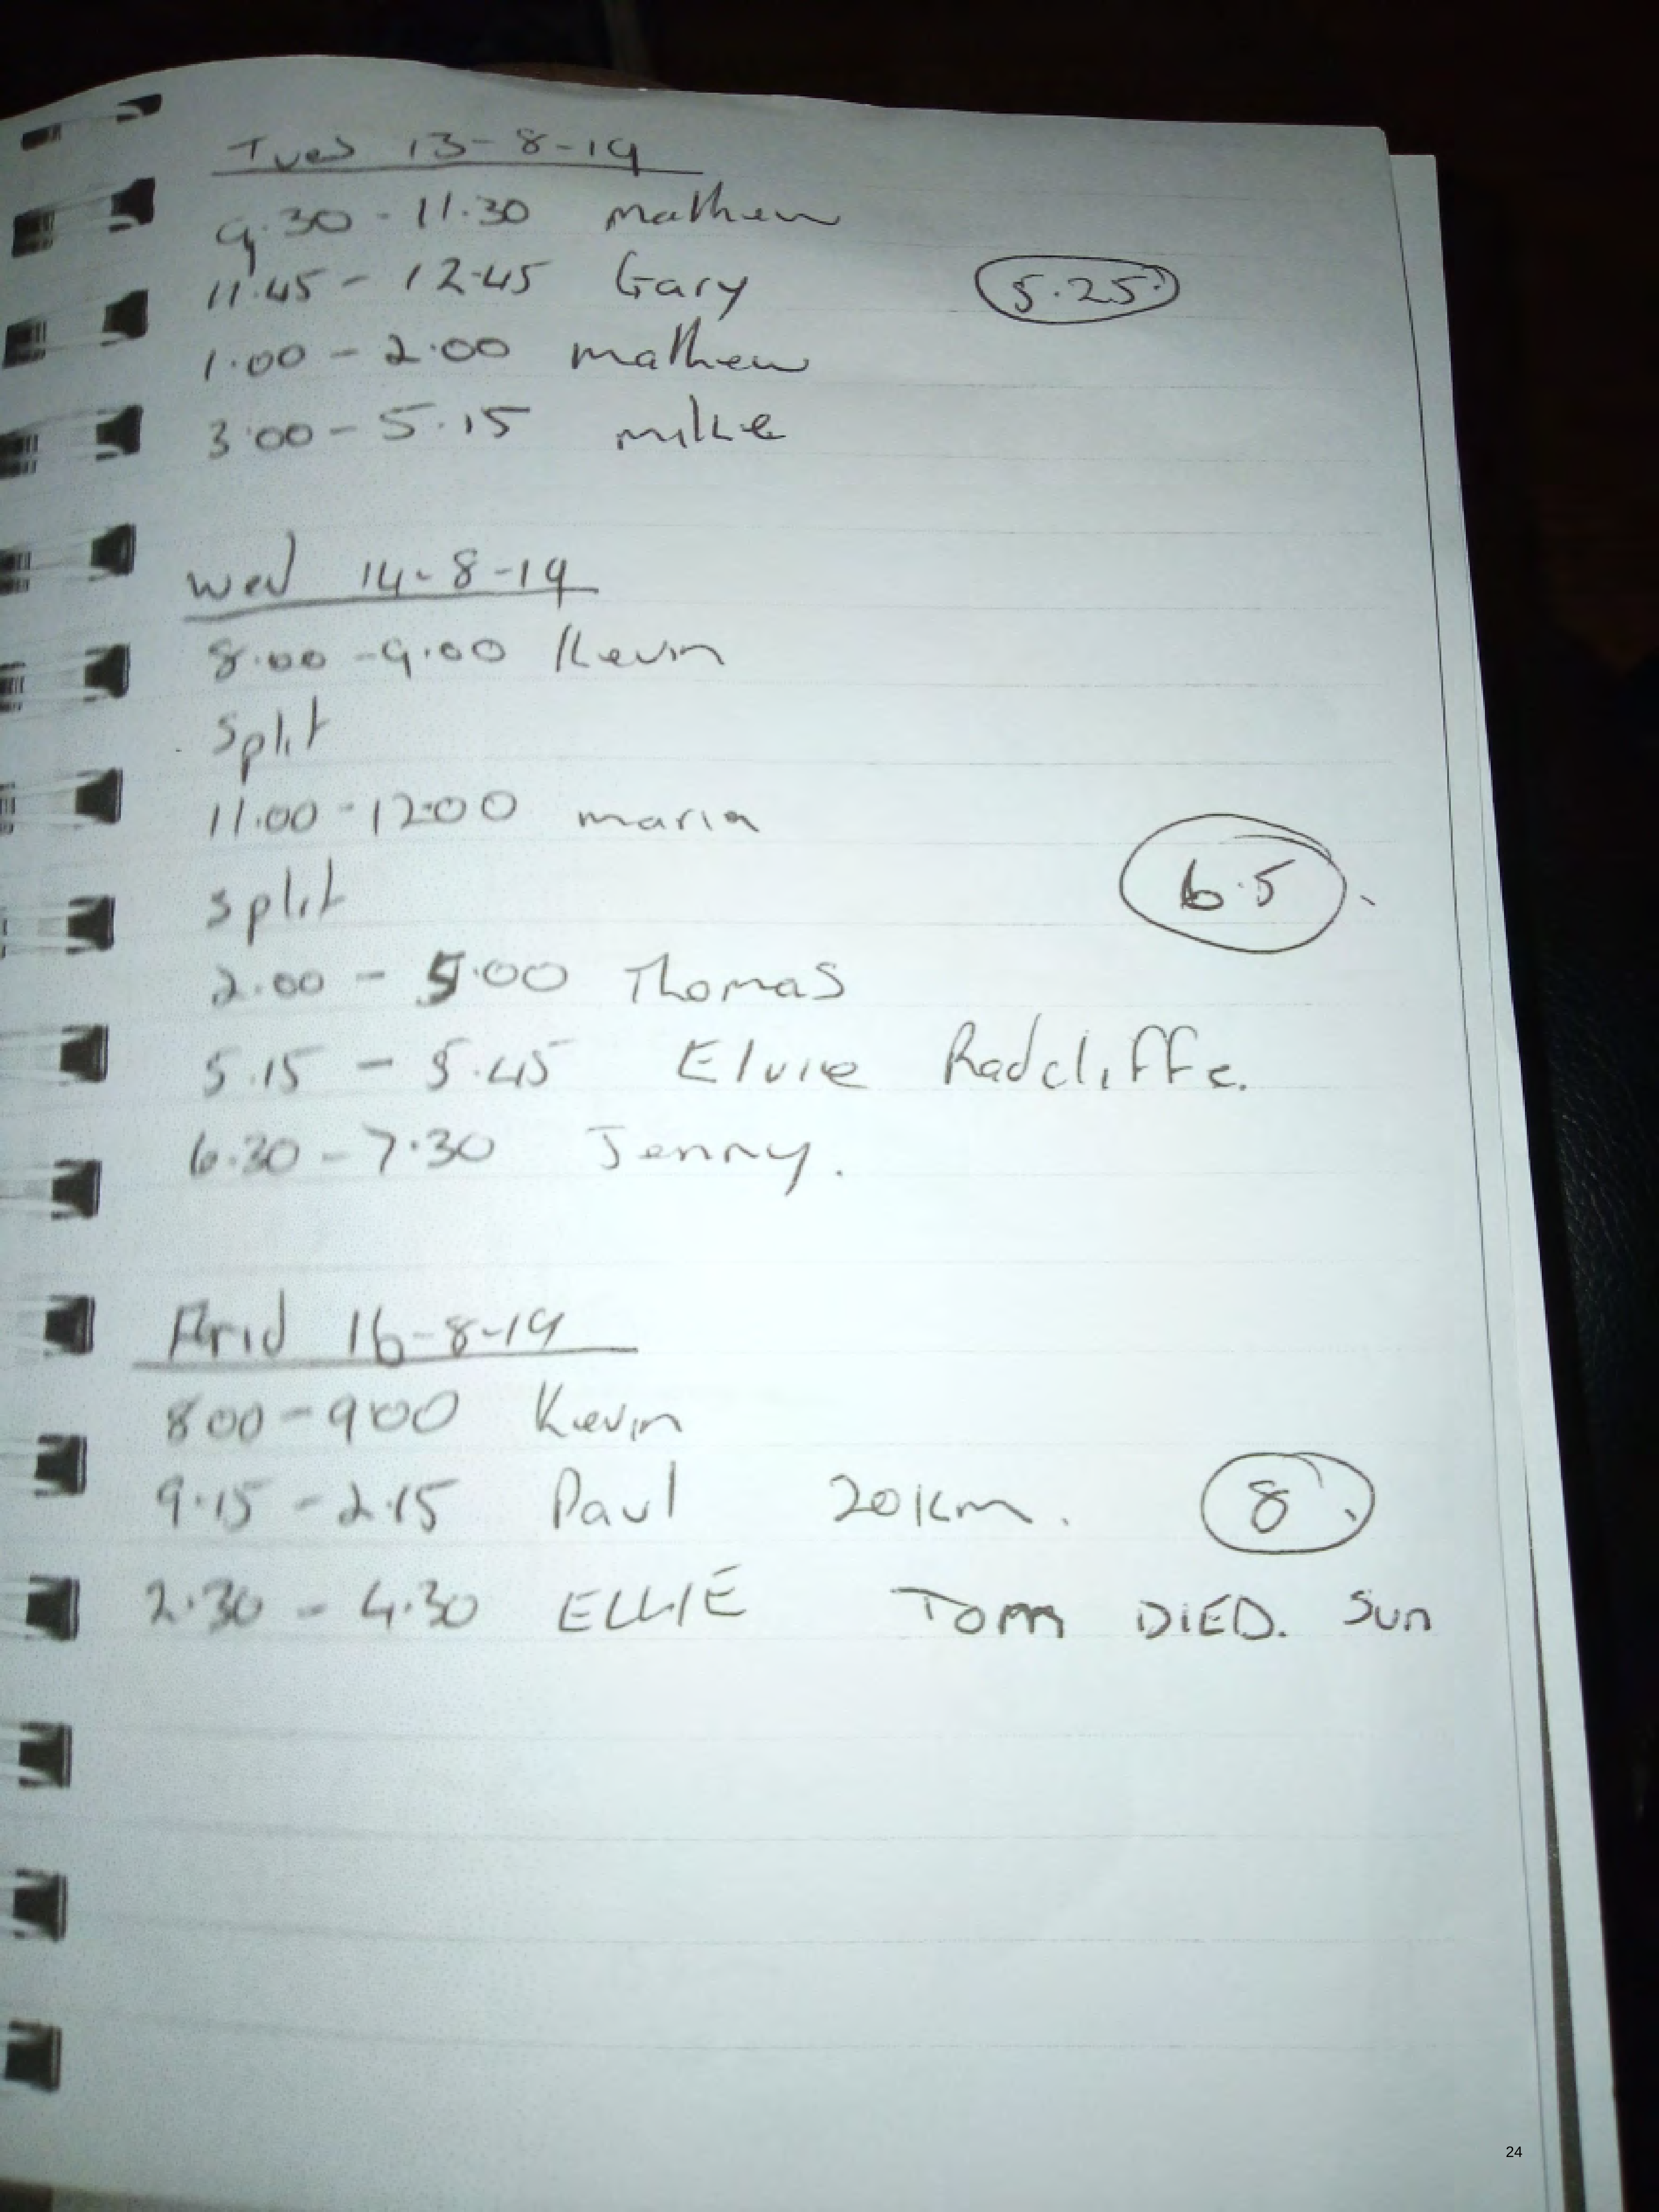 Tues 13-8-19
9.30 - 11.30 mathew
11.45 - 12.45 Gary 5.25
1.00 - 2.00 mathew
3.00 - 5.15 mike
Wed 14-8-19
8.00 - 9.00 Kevin
Split
11.00 - 12.00 maria
split 6.5
2.00 - 5.00 Thomas
5.15 - 5.45 Elvie Radcliffe.
6.30 - 7.30 Jenny.
Frid 16-8-19
8 00 - 9 00 Kevin
9.15 - 2.15 Paul 20km. 8
2.30 - 4.30 ELLIE Tom DIED. Sun
24